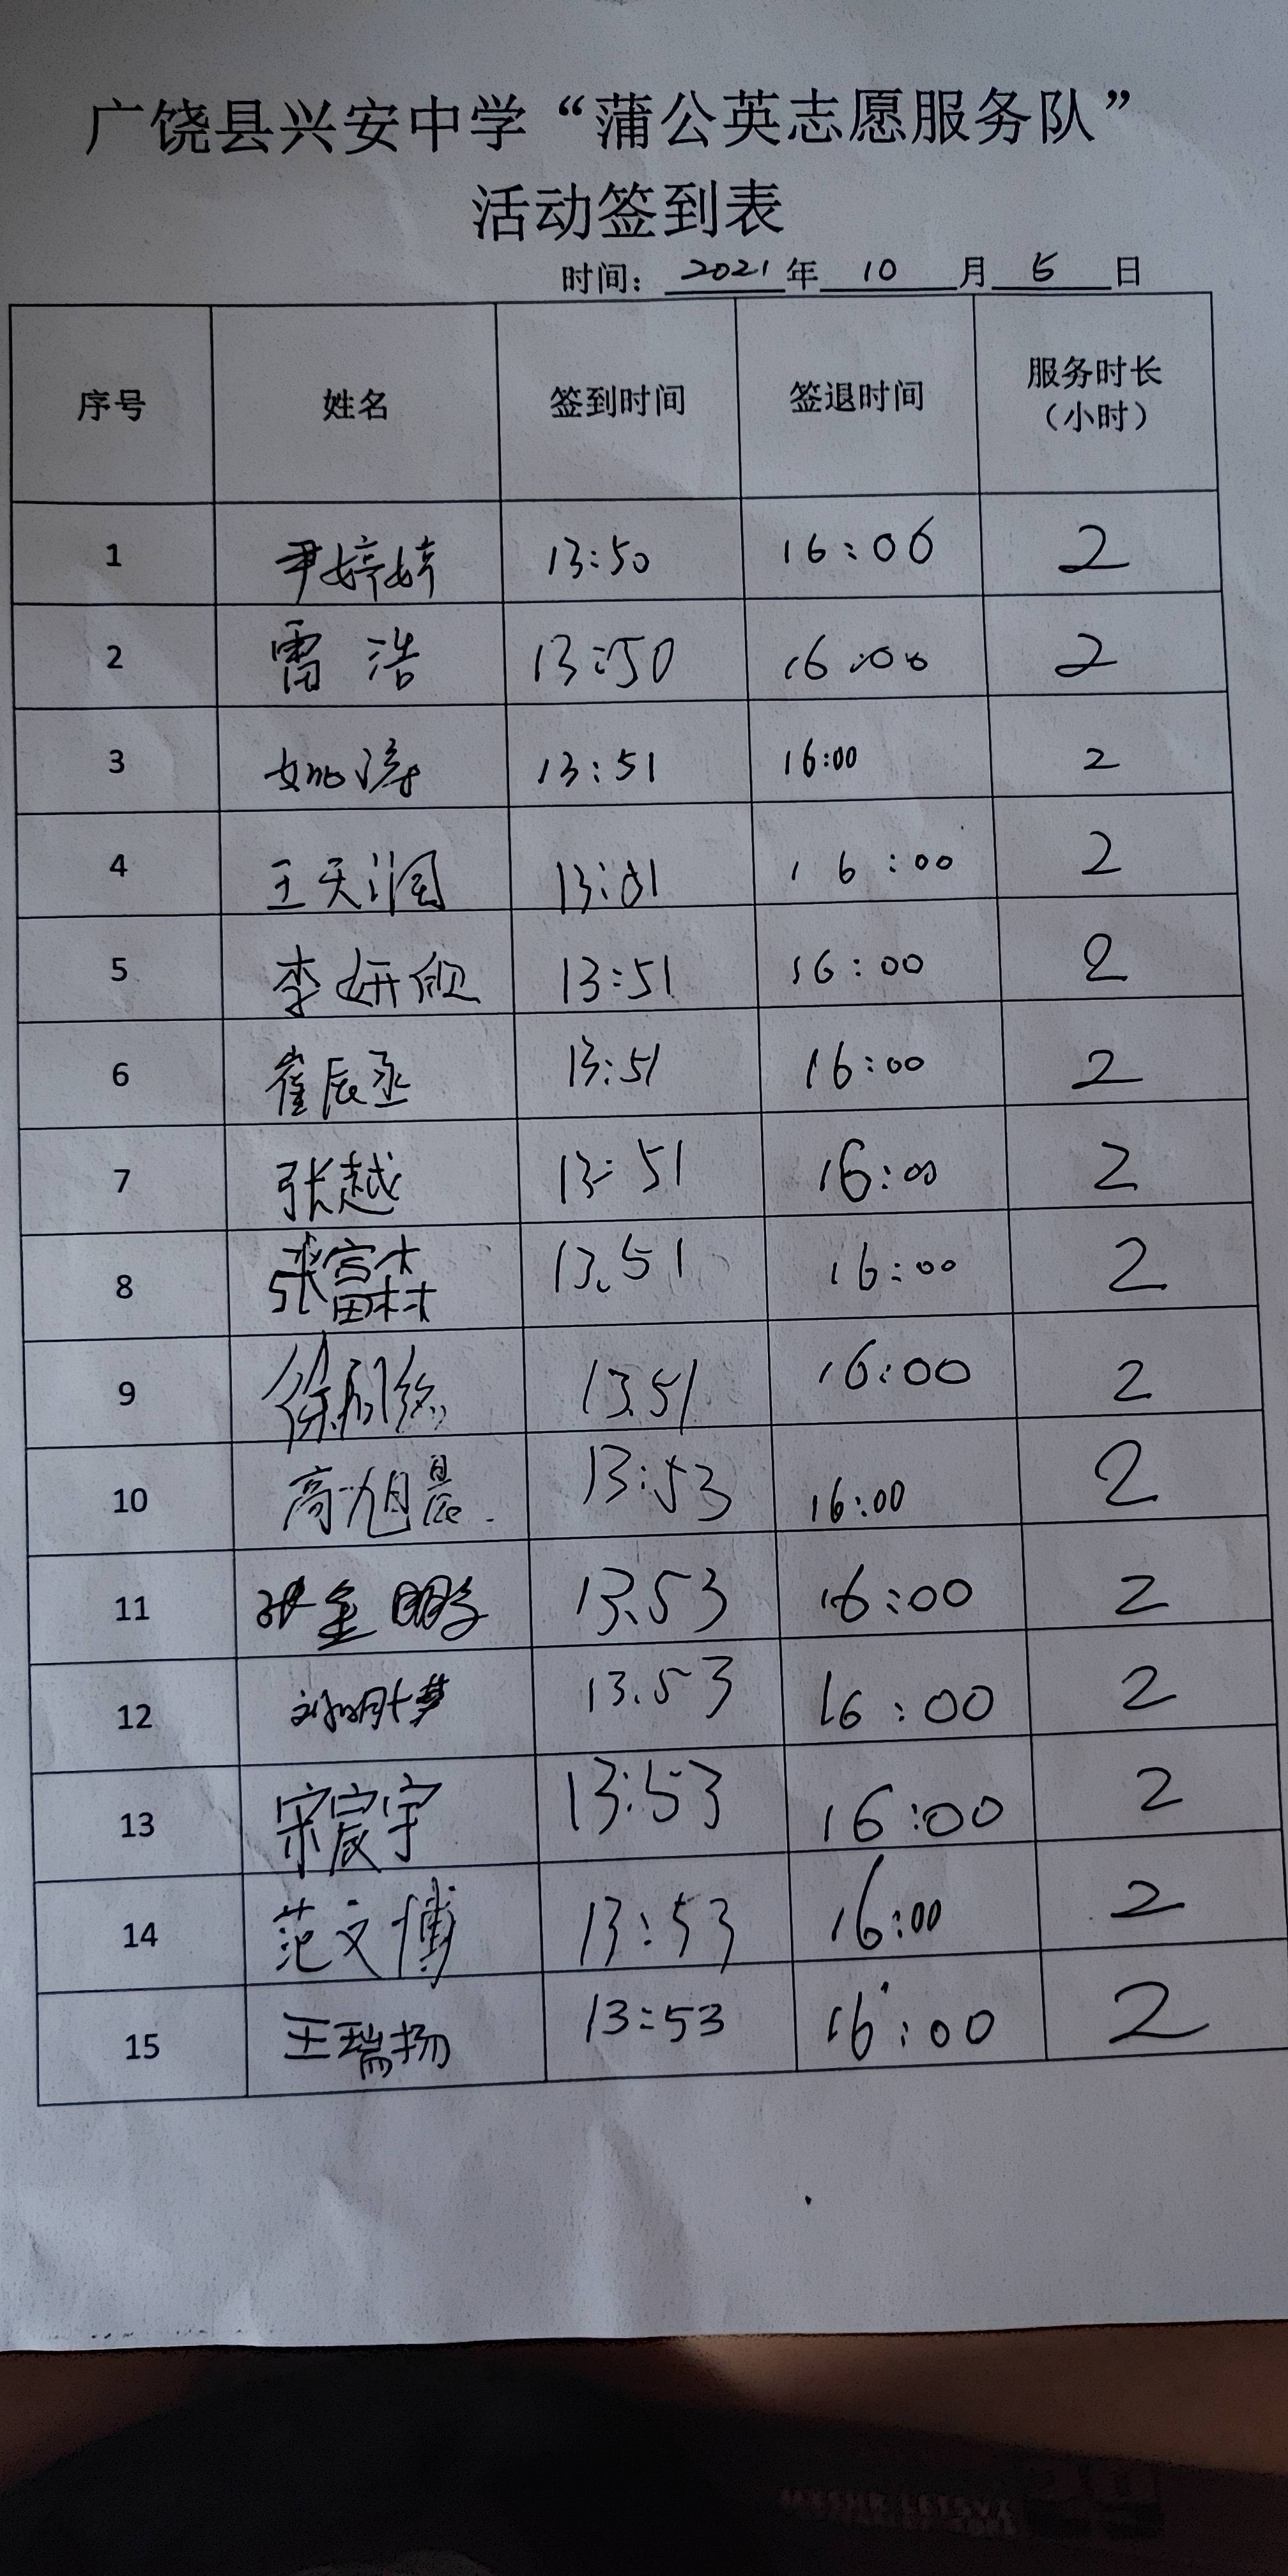 广饶县兴安中学“蒲公英志愿服务队”
活动签到表
时间：2021年10月5日
序号 姓名 签到时间 签退时间 服务时长（小时）
1 尹婷婷 13:50 16:00 2
2 雷浩 13:50 16:00 2
3 姚涛 13:51 16:00 2
4 王天润 13:51 16:00 2
5 李妍 13:51 16:00 2
6 崔辰丞 13:51 16:00 2
7 张越 13:51 16:00 2
8 张富森 13.51 16:00 2
9 徐 13.51 16:00 2
10 高旭晨 13:53 16:00 2
11 张金鹏 13.53 16:00 2
12 13.53 16:00 2
13 宋宸宇 13:53 16:00 2
14 范文博 13:53 16:00 2
15 王瑞扬 13:53 16:00 2